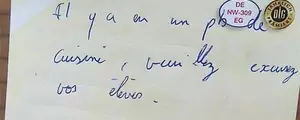 Il y a eu un pb de
cuisine, veuillez excusez
vos élèves.
DE
NW-309
EG